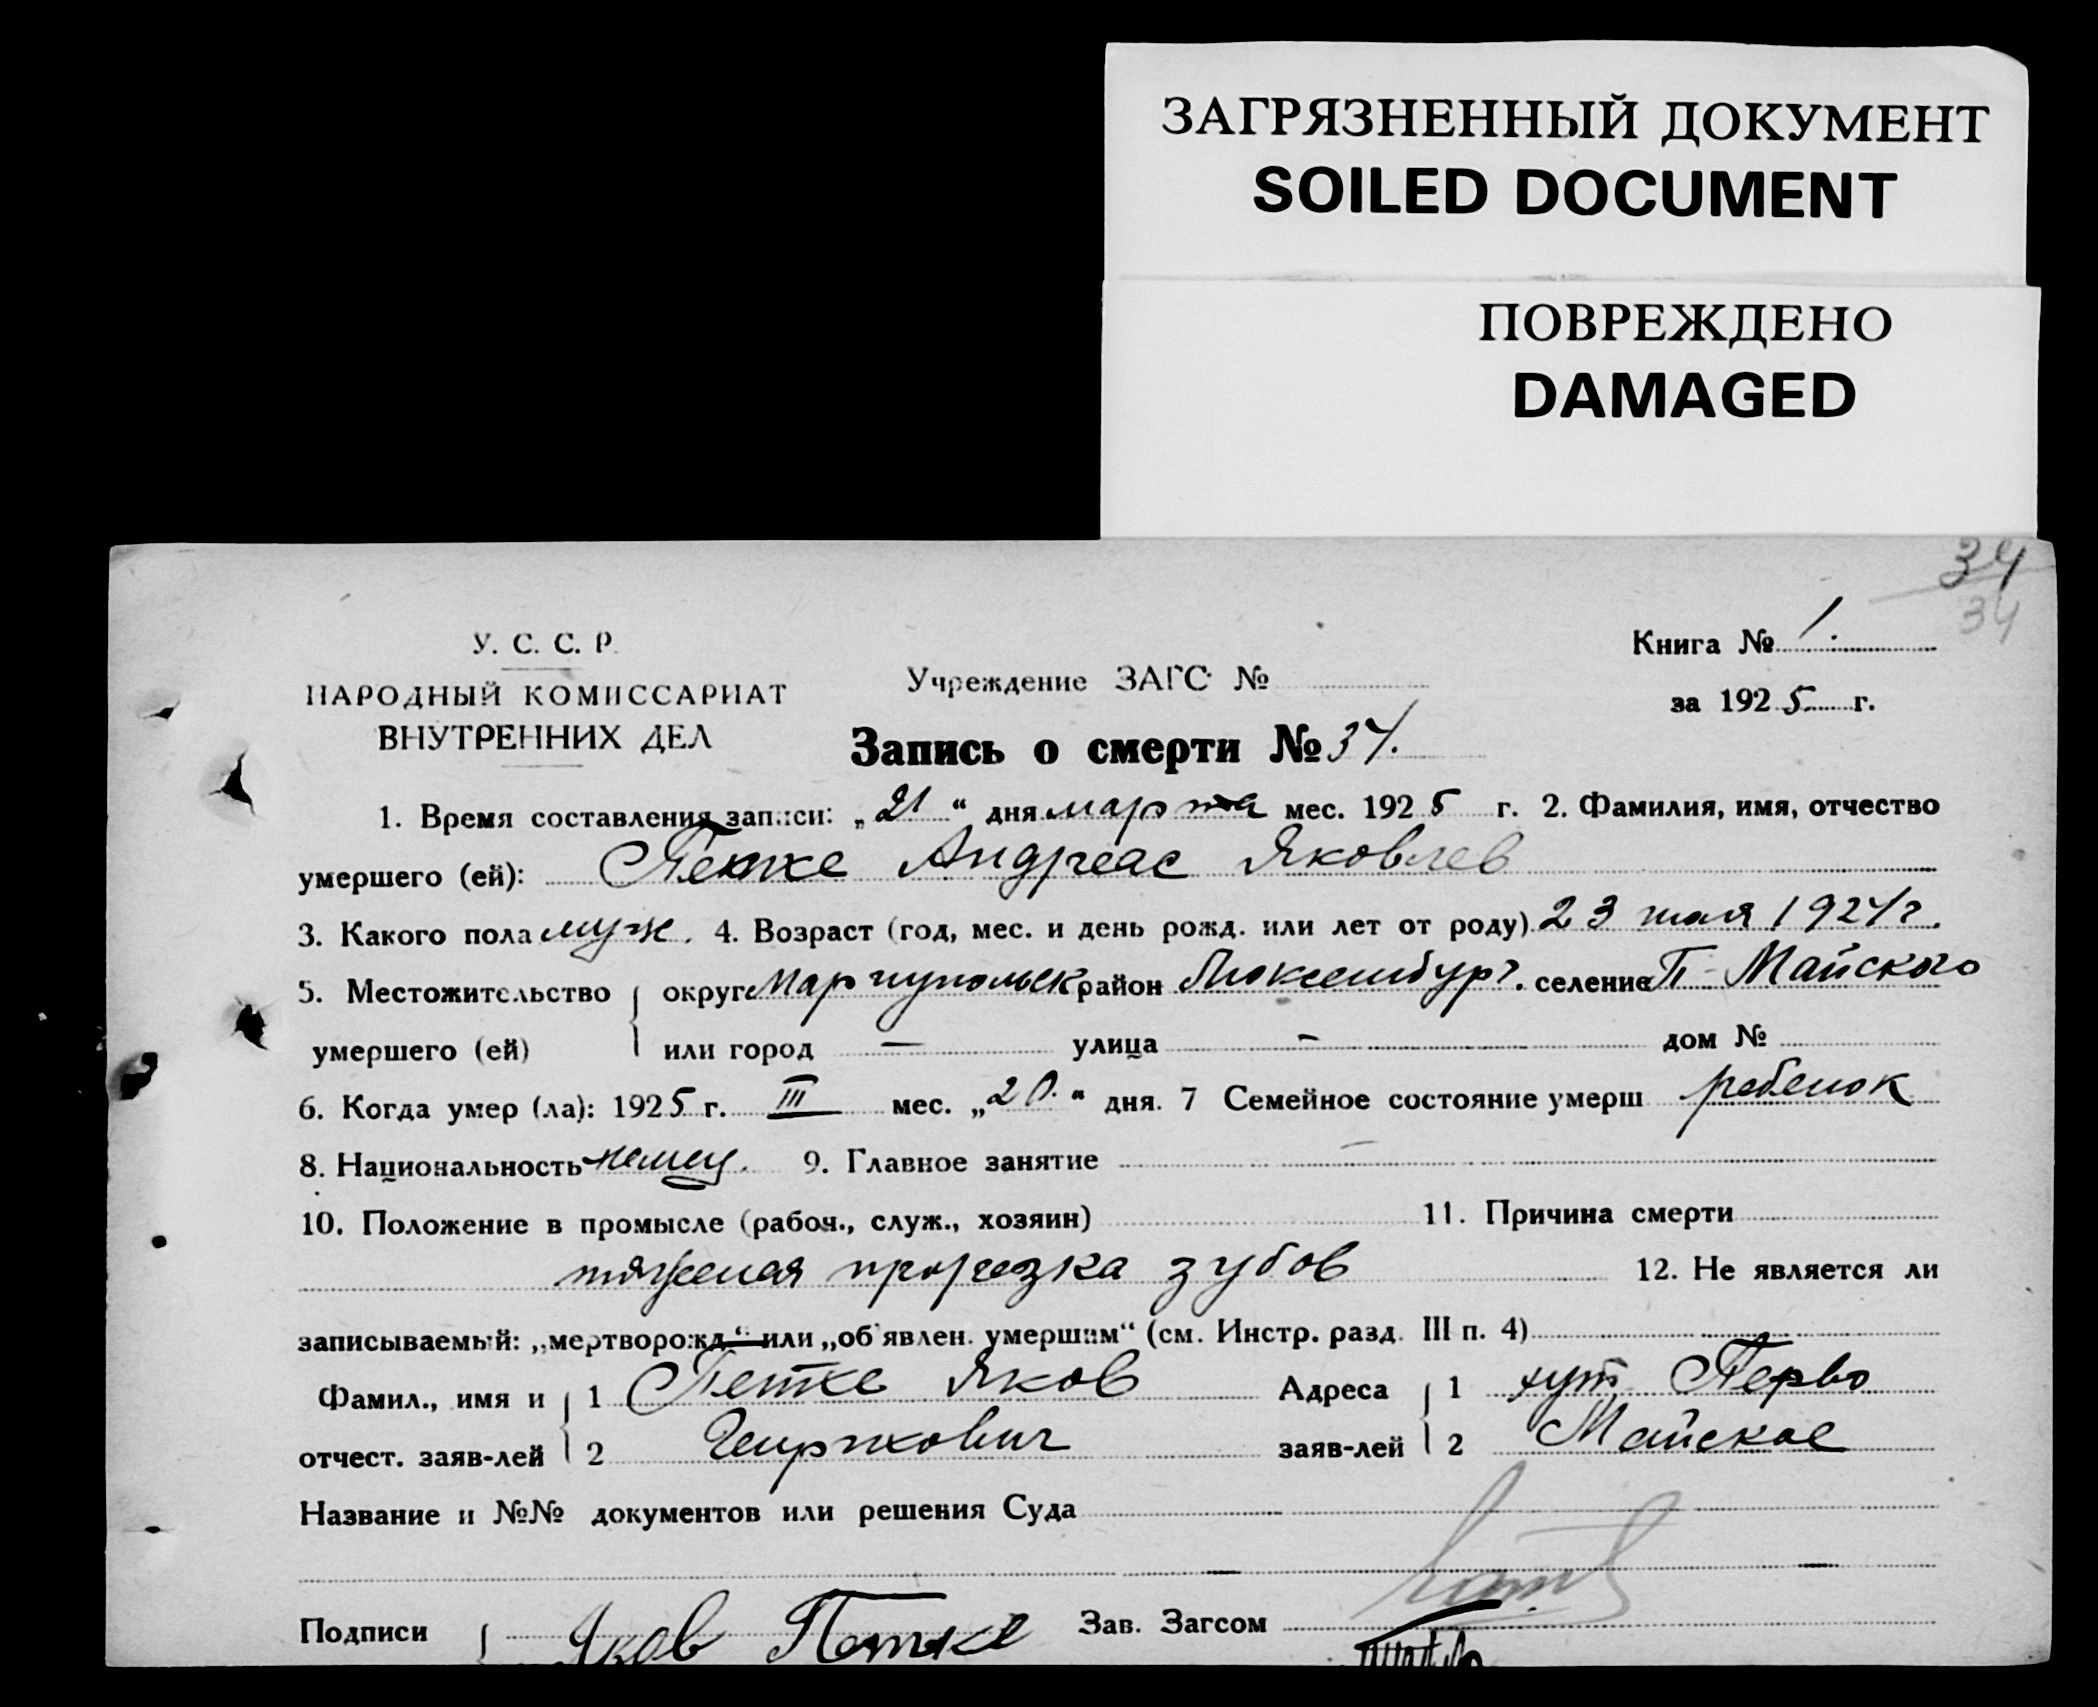 ЗАГРЯЗНЕННЫЙ ДОКУМЕНТ
SOILED DOCUMENT
ПОВРЕЖДЕНО
DAMAGED
34
34
У. С. С. Р.
НАРОДНЫЙ КОМИССАРИАТ
ВНУТРЕННИХ ДЕЛ
Учреждение ЗАГС №
Книга № 1.
за 1925 г.
Запись о смерти № 34.
1. Время составления записи: „21“ дня марта мес. 1925 г. 2. Фамилия, имя, отчество
умершего (ей): Петке Андреас Яковлев
3. Какого пола муж. 4. Возраст (год, мес. и день рожд. или лет от роду) 23 1924 г.
5. Местожительство округ Мариупольск район Люксембург. селение П-Майского
умершего (ей) или город — улица — дом №
6. Когда умер (ла): 1925 г. III мес. „20.“ дня. 7 Семейное состояние умерш ребенок
8. Национальность немец. 9. Главное занятие —
10. Положение в промысле (рабоч., служ., хозяин) 11. Причина смерти
тяжелая прорезка зубов 12. Не является ли
записываемый: „мертворожд.“ или „об'явлен. умершим“ (см. Инстр. разд. III п. 4)
Фамил., имя и 1 Петке Яков Адреса 1 хут. Перво
отчест. заяв-лей 2 заяв-лей 2 Майское
Название и №№ документов или решения Суда
Подписи Яков Петке Зав. Загсом